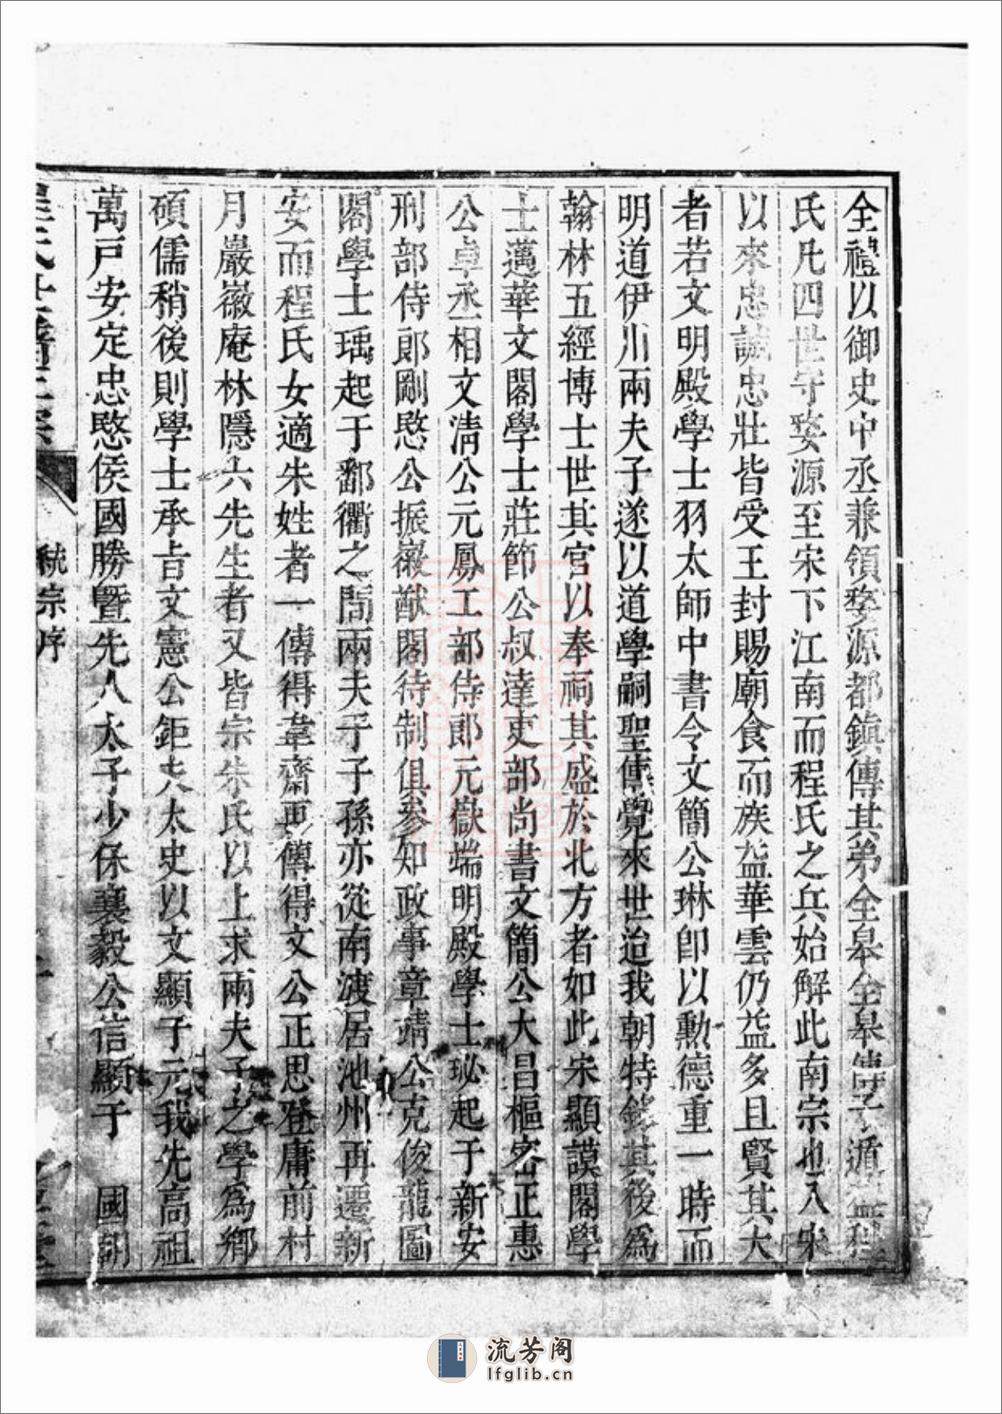 全禮以御史中丞兼領婺源都鎮傳其弟全皋全皋傳子遁
氏凡四世守婺源至宋下江南而程氏之兵始解此南宗也入宋
以來忠誠忠壯皆受王封賜廟食而族益華雲仍益多且賢其大
者若文明殿學士羽太師中書令文簡公琳卽以勳德重一時而
明道伊川兩夫子遂以道學嗣聖傳覺來世迨我朝特錄其後爲
翰林五經博士世其官以奉祠其盛於北方者如此宋顯謨閣學
士邁華文閣學士莊節公叔達吏部尚書文簡公大昌樞密正惠
公卓丞相文清公元鳳工部侍郎元嶽端明殿學士珌起于新安
刑部侍郎剛愍公振徽猷閣待制俱參知政事章靖公克俊龍圖
閣學士瑀起于鄱衢之間兩夫子子孫亦從南渡居池州再遷新
安而程氏女適朱姓者一傳得韋齋再傳得文公正思登庸前村
月巖徽庵林隱六先生者又皆宗朱氏以上求兩夫子之學爲鄉
碩儒稍後則學士承旨文憲公鉅夫太史以文顯于元我先高祖
萬戸安定忠愍侯國勝暨先人太子少保襄毅公信顯于　國朝
統宗序
流芳阁
lfglib.cn